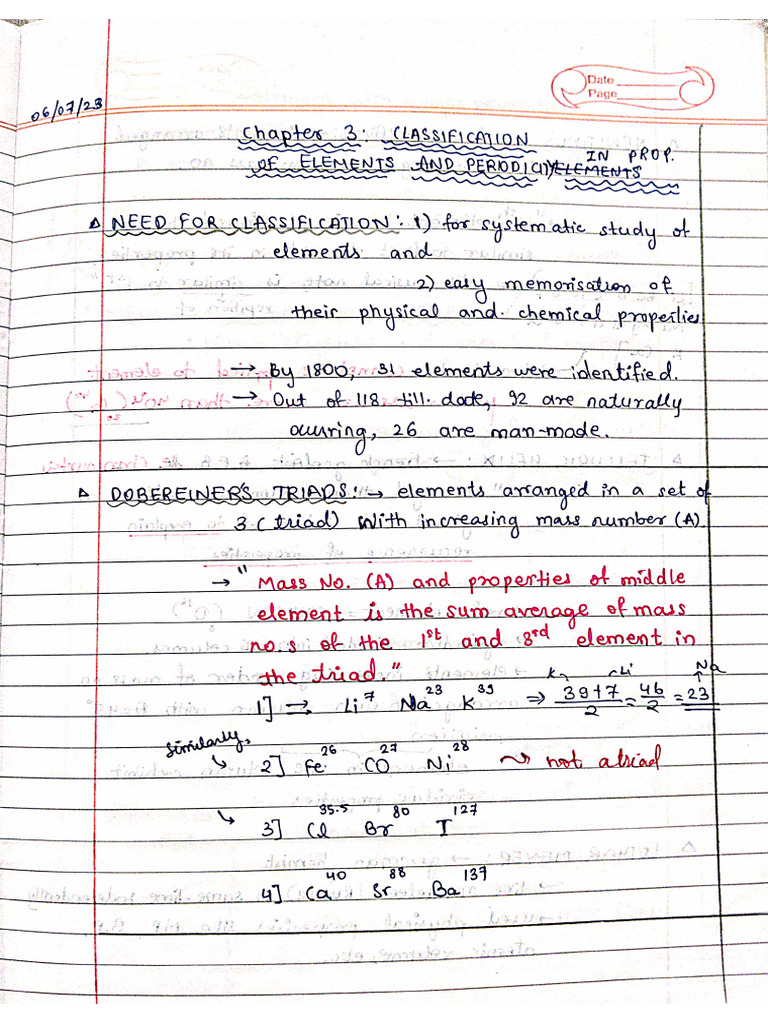 Date
Page
06/07/23
Chapter 3: CLASSIFICATION
IN PROP.
OF ELEMENTS AND PERIODICITY ELEMENTS
Δ NEED FOR CLASSIFICATION: 1) for systematic study of
elements and
2) easy memorisation of
their physical and chemical properties
→ By 1800, 31 elements were identified.
→ Out of 118 till date, 92 are naturally
occuring, 26 are man-made.
Δ DOBEREINER'S TRIADS: → elements arranged in a set of
3 (triad) with increasing mass number (A).
→ "Mass No. (A) and properties of middle
element is the sum average of mass
no.s of the 1st and 3rd element in
the triad."
K Li Na
1] → Li⁷ Na²³ K³⁹ ⇒ 39+7/2 = 46/2 = 23
Similarly,
2] Fe²⁶ CO²⁷ Ni²⁸ not a triad
3] Cl³⁵·⁵ Br⁸⁰ I¹²⁷
4] Ca⁴⁰ Sr⁸⁸ Ba¹³⁷